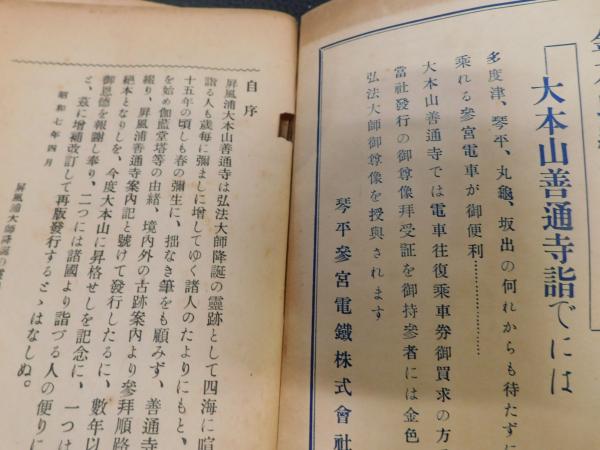 大本山善通寺詣でには
多度津、琴平、丸龜、坂出の何れからも待たずに
乘れる參宮電車が御便利
大本山善通寺では電車往復乘車券御買求の方
當社發行の御尊像拜受証を御持參者には金色
弘法大師御尊像を授與されます
琴平參宮電鐵株式會社
自序
屏風浦大本山善通寺は弘法大師降誕の靈跡として四海に喧
詣る人も歲每に彌ましに增してゆく諸人のたよりにもと、
十五年の頃しも春の彌生に、拙なき筆をも顧みず、善通寺
を始め伽藍堂塔等の由緖、境內外の古跡案內より參拜順路
綴り、屏風浦善通寺案內記と號けて發行したるに、數年以
絕本となりしを、今度大本山に昇格せしを記念に、一つは
御恩德を報謝し奉り、二つには諸國より詣づる人の便りに
と、茲に增補改訂して再版發行するとゝはなしぬ。
昭和七年四月
屏風浦大師降誕の靈